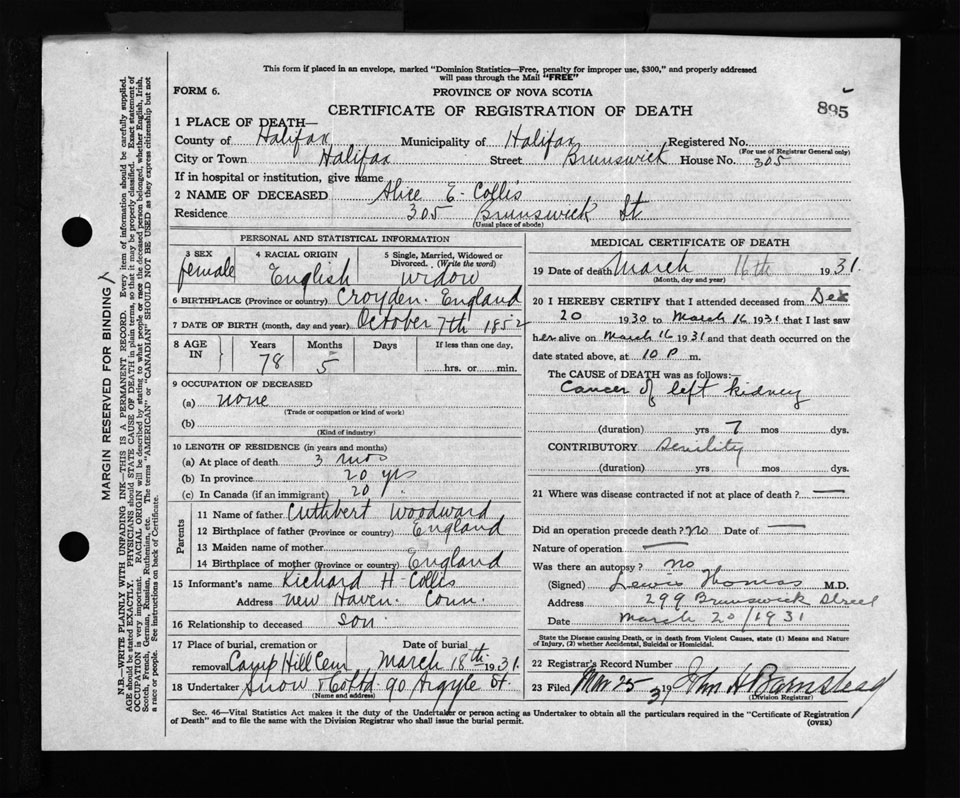 This form if placed in an envelope, marked "Dominion Statistics—Free, penalty for improper use, $300," and properly addressed
will pass through the Mail "FREE"
FORM 6.
PROVINCE OF NOVA SCOTIA
895
CERTIFICATE OF REGISTRATION OF DEATH
1 PLACE OF DEATH—
County of Halifax Municipality of Halifax Registered No.
(For use of Registrar General only)
City or Town Halifax Street Brunswick House No. 305
If in hospital or institution, give name
2 NAME OF DECEASED Alice E. Collis
Residence 305 Brunswick St
(Usual place of abode)
PERSONAL AND STATISTICAL INFORMATION
3 SEX female 4 RACIAL ORIGIN English 5 Single, Married, Widowed or Divorced. (Write the word) widow
6 BIRTHPLACE (Province or country) Croyden. England
7 DATE OF BIRTH (month, day and year) October 7th 1852
8 AGE IN Years 78 Months 5 Days If less than one day, hrs. or min.
9 OCCUPATION OF DECEASED
(a) none
(Trade or occupation or kind of work)
(b)
(Kind of industry)
10 LENGTH OF RESIDENCE (in years and months)
(a) At place of death 3 mos
(b) In province 20 yrs
(c) In Canada (if an immigrant) 20 "
Parents
11 Name of father Cuthbert Woodward
12 Birthplace of father (Province or country) England
13 Maiden name of mother
14 Birthplace of mother (Province or country) England
15 Informant's name Richard H. Collis
Address New Haven. Conn.
16 Relationship to deceased son
17 Place of burial, cremation or removal Camp Hill Cem Date of burial March 18th 1931
18 Undertaker Snow & Co Ltd 90 Argyle St.
(Name and address)
MEDICAL CERTIFICATE OF DEATH
19 Date of death March 16th 1931.
(Month, day and year)
20 I HEREBY CERTIFY that I attended deceased from Dex
20 1930 to March 16 1931 that I last saw
her alive on March 16 1931 and that death occurred on the
date stated above, at 10 P m.
The CAUSE OF DEATH was as follows:—
Cancer of left kidney
(duration) yrs 7 mos dys.
CONTRIBUTORY Senility
(duration) yrs. mos. dys.
21 Where was disease contracted if not at place of death? —
Did an operation precede death? no Date of —
Nature of operation —
Was there an autopsy? no
(Signed) Lewis Thomas M.D.
Address 299 Brunswick Street
Date March 20/1931
State the Disease causing Death, or in death from Violent Causes, state (1) Means and Nature
of Injury, (2) whether Accidental, Suicidal or Homicidal.
22 Registrar's Record Number
23 Filed Mar 25 1931 John H Barnstead
(Division Registrar)
Sec. 46—Vital Statistics Act makes it the duty of the Undertaker or person acting as Undertaker to obtain all the particulars required in the "Certificate of Registration
of Death" and to file the same with the Division Registrar who shall issue the burial permit.
(OVER)
MARGIN RESERVED FOR BINDING
N.B.—WRITE PLAINLY WITH UNFADING INK—THIS IS A PERMANENT RECORD. Every item of information should be carefully supplied.
AGE should be stated EXACTLY. PHYSICIANS should STATE CAUSE OF DEATH in plain terms, so that it may be properly classified. Exact statement of
OCCUPATION is very important. RACIAL ORIGIN will be described by stating to what people or race the deceased person belonged, whether English, Irish,
Scotch, French, German, Russian, Ruthenian, etc. The terms "AMERICAN" or "CANADIAN" SHOULD NOT BE USED as they express citizenship but not
a race or people. See instructions on back of Certificate.